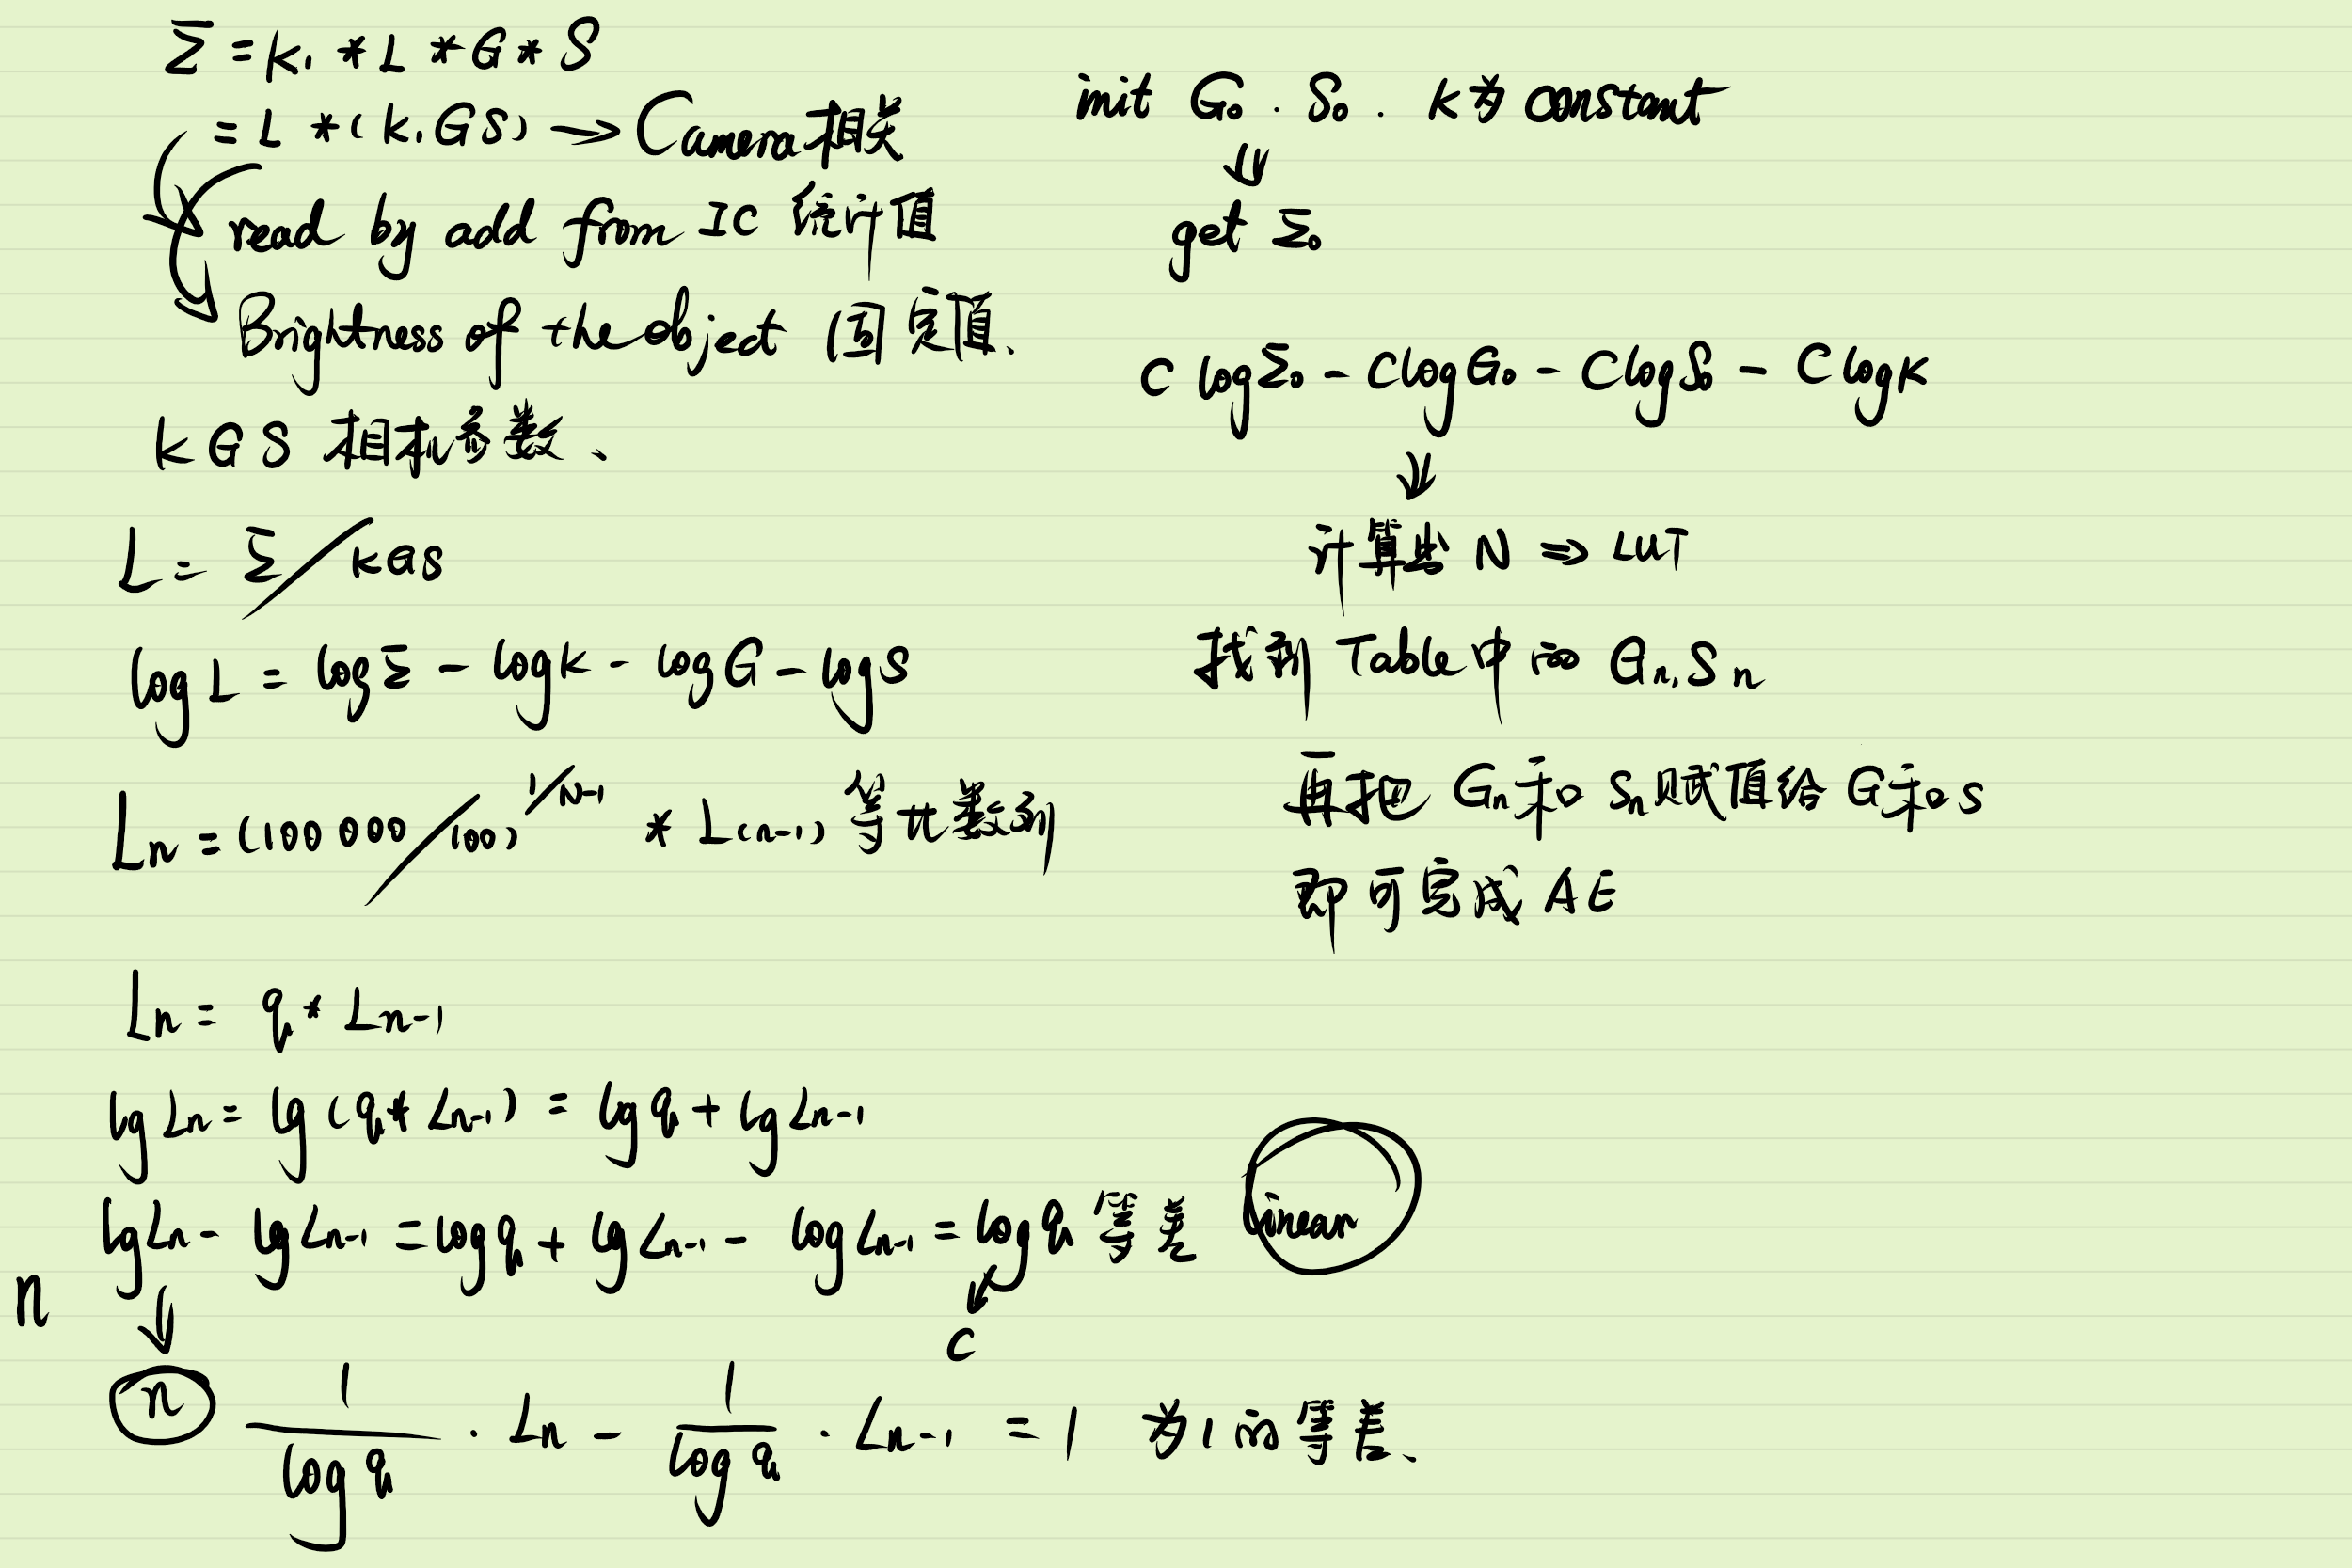 Σ̄ = K₁ * L * G * S
= L * (K₁GS) → Camera 相关
read by add from IC 统计值
Brightness of the object 固定值、
K G S 相机参数、
L = Σ̄ / KGS
log L = log Σ̄ - log K - log G - log S
Ln = (100 000 / 100)^1/N-1 * L(n-1) 等比数列
Ln = q * Ln-1
lg Ln = lg (q * Ln-1) = lg q + lg Ln-1
lg Ln - lg Ln-1 = log q + lg Ln-1 - log Ln-1 = log q 等差 linear
n
C
n 1/log q · Ln - 1/log q · Ln-1 = 1 为1的等差、
init G₀ . S₀ . K为 constant
⇓
get Σ̄₀
C log Σ̄₀ - C log G₀ - C log S₀ - C log K
↓
计算出 N ⇒ LUT
找到 Table中的 Gn, Sn
再把 Gn和 Sn赋值给 G和S
即可完成 AE